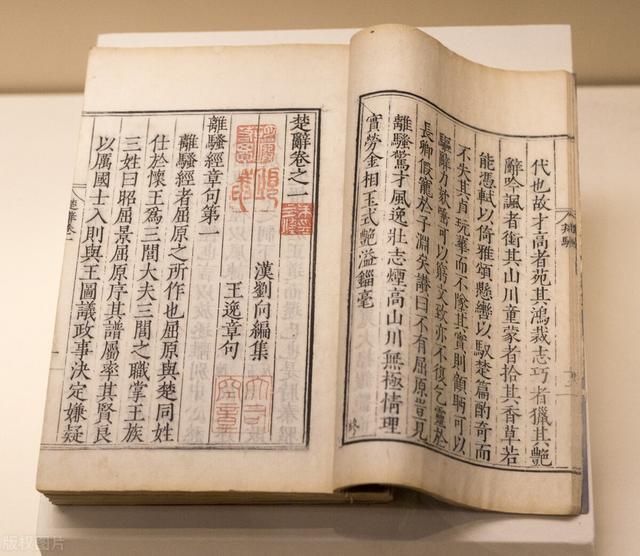 代也故才高者苑其鴻裁志巧者獵其艷
辭吟諷者銜其山川童蒙者拾其香草若
能憑軾以倚雅頌懸轡以馭楚篇酌奇而
不失其貞玩華而不墜其實則顧眄可以
驅辭力欬唾可以窮文致亦不復乞靈於
長卿假寵於子淵矣讚曰不有屈原豈見
離騷驚才風逸壯志煙高山川無極情理
實勞金相玉式艷溢錙毫
楚辭卷之一
漢劉向編集
王逸章句
離騷經章句第一
離騷經者屈原之所作也屈原與楚同姓
仕於懷王爲三閭大夫三閭之職掌王族
三姓曰昭屈景屈原序其譜屬率其賢良
以厲國士入則與王圖議政事決定嫌疑
版权图片